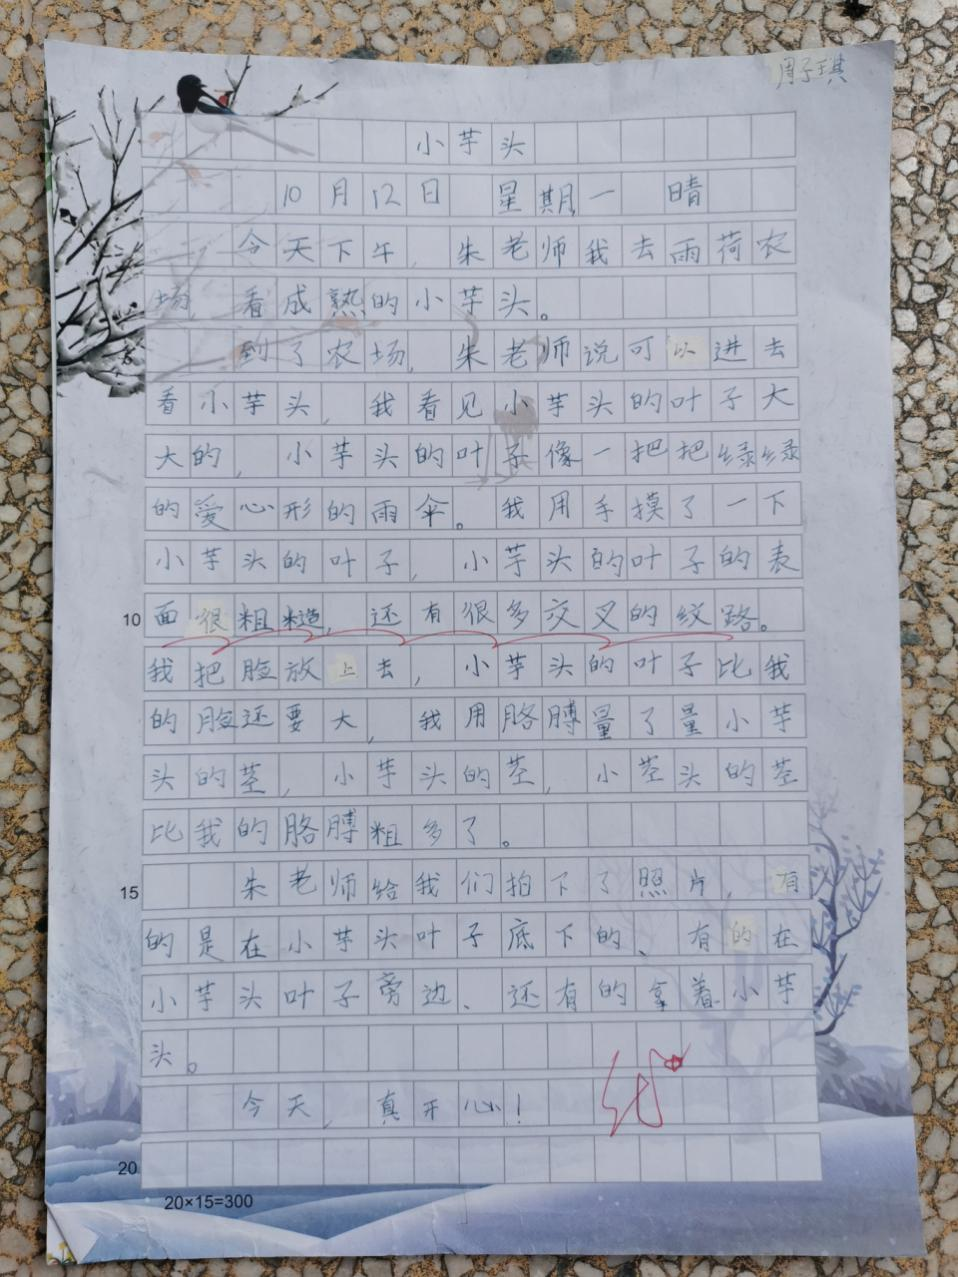 周子琪
小芋头
10月12日 星期一 晴
今天下午,朱老师我去雨荷农
场,看成熟的小芋头。
到了农场,朱老师说可以进去
看小芋头,我看见小芋头的叶子大
大的,小芋头的叶子像一把把绿绿
的爱心形的雨伞。我用手摸了一下
小芋头的叶子,小芋头的叶子的表
10 面很粗糙,还有很多交叉的纹路。
我把脸放上去,小芋头的叶子比我
的脸还要大,我用胳膊量了量小芋
头的茎,小芋头的茎,小茎头的茎
比我的胳膊粗多了。
15 朱老师给我们拍下了照片,有
的是在小芋头叶子底下的、有的在
小芋头叶子旁边、还有的拿着小芋
头。
今天,真开心!
20
20×15=300